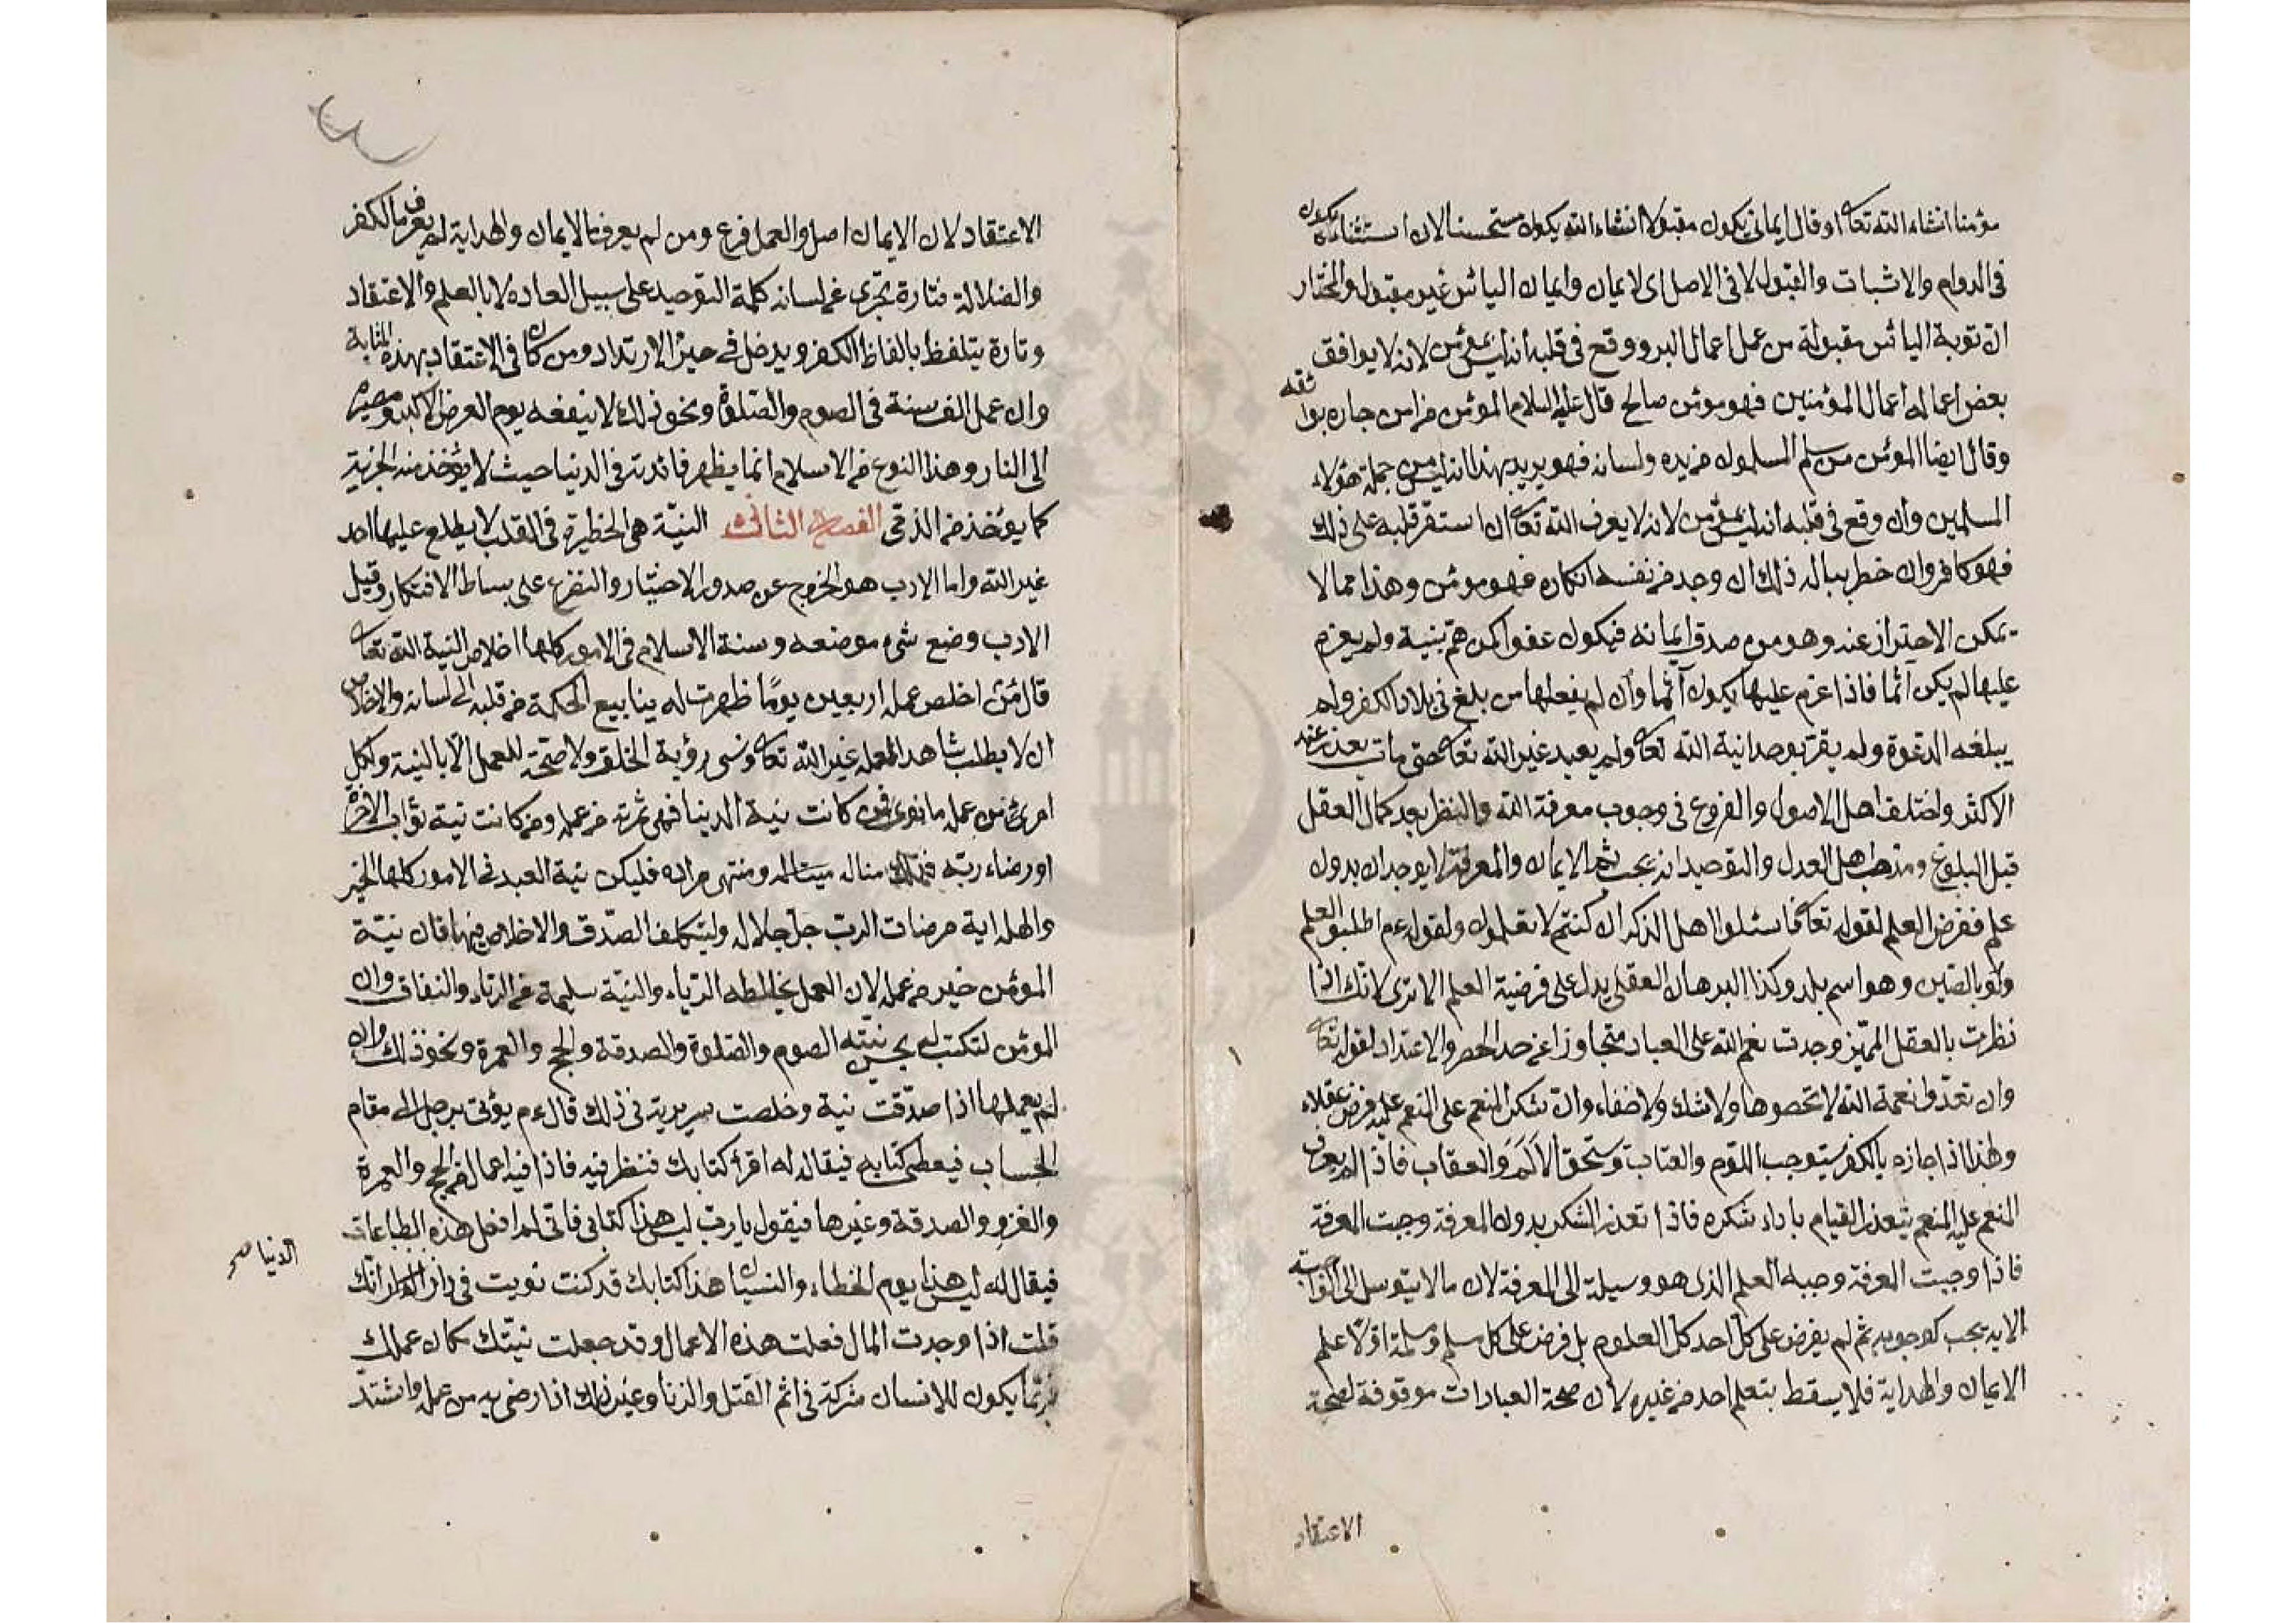 مؤمنا انشاء الله تعا او قال ايماني يكون مقبولا انشاء الله يكون مستحسنا لان استثناءه يكون
في الدوام والاثبات والقبول لا في الاصل اى لايمان وايمان اليائس غير مقبول والمختار
ان توبة اليائس مقبولة من عمل اعمال البر ووقع في قلبه أنه ليس بمؤمن لانه لا يوافق
بعض اعماله اعمال المؤمنين فهو مومن صالح قال عليه السلام المؤمن من امن جاره بوائقه
وقال ايضا المؤمن من سلم المسلمون من يده ولسانه فهو يريد بهذا انه ليس من جملة هؤلاء
المسلمين وان وقع في قلبه انه ليس بمؤمن لانه لا يعرف الله تعا ان استقر قلبه على ذلك
فهو كافر وان خطر بباله ذلك ان وجد من نفسه انكاره فهو مومن وهذا مما لا
يمكن الاحتراز عنه وهو من صدق ايمانه فيكون عفوا كمن هم بنية ولم يعزم
عليها لم يكن آثما فاذا عزم عليها يكون آثما وان لم يفعلها من بلغ في بلاد الكفر ولم
يبلغه الدعوة ولم يقر بوحدانية الله تعا ولم يعبد غير الله تعا حتى مات يعذر عند
الاكثر واختلف اهل الاصول والفروع في وجوب معرفة الله والنظر بعد كمال العقل
قبل البلوغ ومذهب اهل العدل والتوحيد انه يجب ثم الايمان والمعرفة لا يوجدان بدون
علم ففرض العلم لقوله تعا فاسئلوا اهل الذكر ان كنتم لا تعلمون ولقوله عم اطلبوا العلم
ولو بالصين وهو اسم بلد وكذا البرهان العقلي يدل على فرضية العلم الا ترى لانك اذا
نظرت بالعقل المميز وجدت نعم الله على العباد متجاوزا عن حد الحصر والاعتداد لقوله تعا
وان تعدوا نعمة الله لا تحصوها ولا شك ولا خفاء وان شكر المنعم على المنعم عليه فرض عقلاء
ولهذا اذا جازه بالكفر يستوجب اللوم والعتاب ويستحق الالم والعقاب فاذا لم يعرف
المنعم عليه المنعم يتعذر القيام باداء شكره فاذا تعذر الشكر بدون المعرفة وجبت المعرفة
فاذا وجبت المعرفة وجبه العلم الذى هو وسيلة الى المعرفة لان ما لا يتوسل الى الواجبة
الا به يجب كوجوبه ثم لم يفرض على كل احد كل العلوم بل فرض على كل مسلم ومسلمة اولا علم
الايمان والهداية فلا يسقط بتعلم احد من غيره لان صحة العبادات موقوفة لصحة
الاعتقاد
الاعتقاد لان الايمان اصل والعمل فرع ومن لم يعرف الايمان والهداية لم يعرف ما الكفر
والضلالة فتارة تجرى على لسانه كلمة التوحيد على سبيل العادة لا بالعلم والاعتقاد
وتارة يتلفظ بالفاظ الكفر ويدخل في حيز الارتداد ومن كان في الاعتقاد بهذه المثابة
وان عمل الف سنة في الصوم والصلوة ونحو ذلك لا ينفعه يوم العرض الاكبر ومصيره
الى النار وهذا النوع من الاسلام انما يظهر فائدته في الدنيا حيث لا يؤخذ منه الجزية
كما يوخذ من الذمي الفصل الثاني النية هى الخطيرة في القلب لا يطلع عليها احد
غير الله واما الادب هو الخروج عن صدور الاختيار والتضرع على بساط الافتكار وقيل
الادب وضع شيء موضعه وسنة الاسلام في الامور كلها اخلاص النية الله تعا
قال من اخلص عمله اربعين يوما ظهرت له ينابيع الحكمة من قلبه الى لسانه والاخلاص
ان لا يطلب شاهدا لعمله غير الله تعا ونسى رؤية الخلق ولا صحة للعمل الا بالنية ولكل
امرئ من عمله ما نوى فمن كانت نية الدينا فهى ثمرته من عمله ومن كانت نية ثواب الآخرة
او رضاء ربه فتلك مناله ومنتهى مراده فليكن نية العبد في الامور كلها الخير
والهداية مرضات الرب جل جلاله وليتكلف الصدق والاخلاص فيها قال نية
المؤمن خير من عمله لان العمل يخالطه الرياء والنية سليمة من الرياء والنفاق وان
المؤمن لتكتب له بحسن نيته الصوم والصلوة والصدقة والحج والعمرة ونحو ذلك وان
لم يعملها اذا صدقت نية وخلصت سريرية في ذلك قال ءم يؤتى برجل الى مقام
الحساب فيعطى كتابه فيقال له اقرأ كتابك فننظر فيه فاذا فيه اعمال من الحج والعمرة
والغزو والصدقة وغيرها فيقول يا رب ليس هذا كتابي فاني لم افعل هذه الطاعات
فيقال له ليس هذا يوم الخطاء والنسيان هذا كتابك قد كنت نويت في دار الدنيا انك
الدنيا صح
قلت اذا وجدت المال فعلت هذه الاعمال وقد جعلت نيتك كمان عملك
ربما يكون للانسان شركة في اثم القتل والزنا وغير ذلك اذا رضى به من عمله واشتد